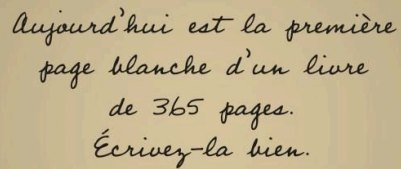 Aujourd'hui est la première
page blanche d'un livre
de 365 pages.
Écrivez-la bien.